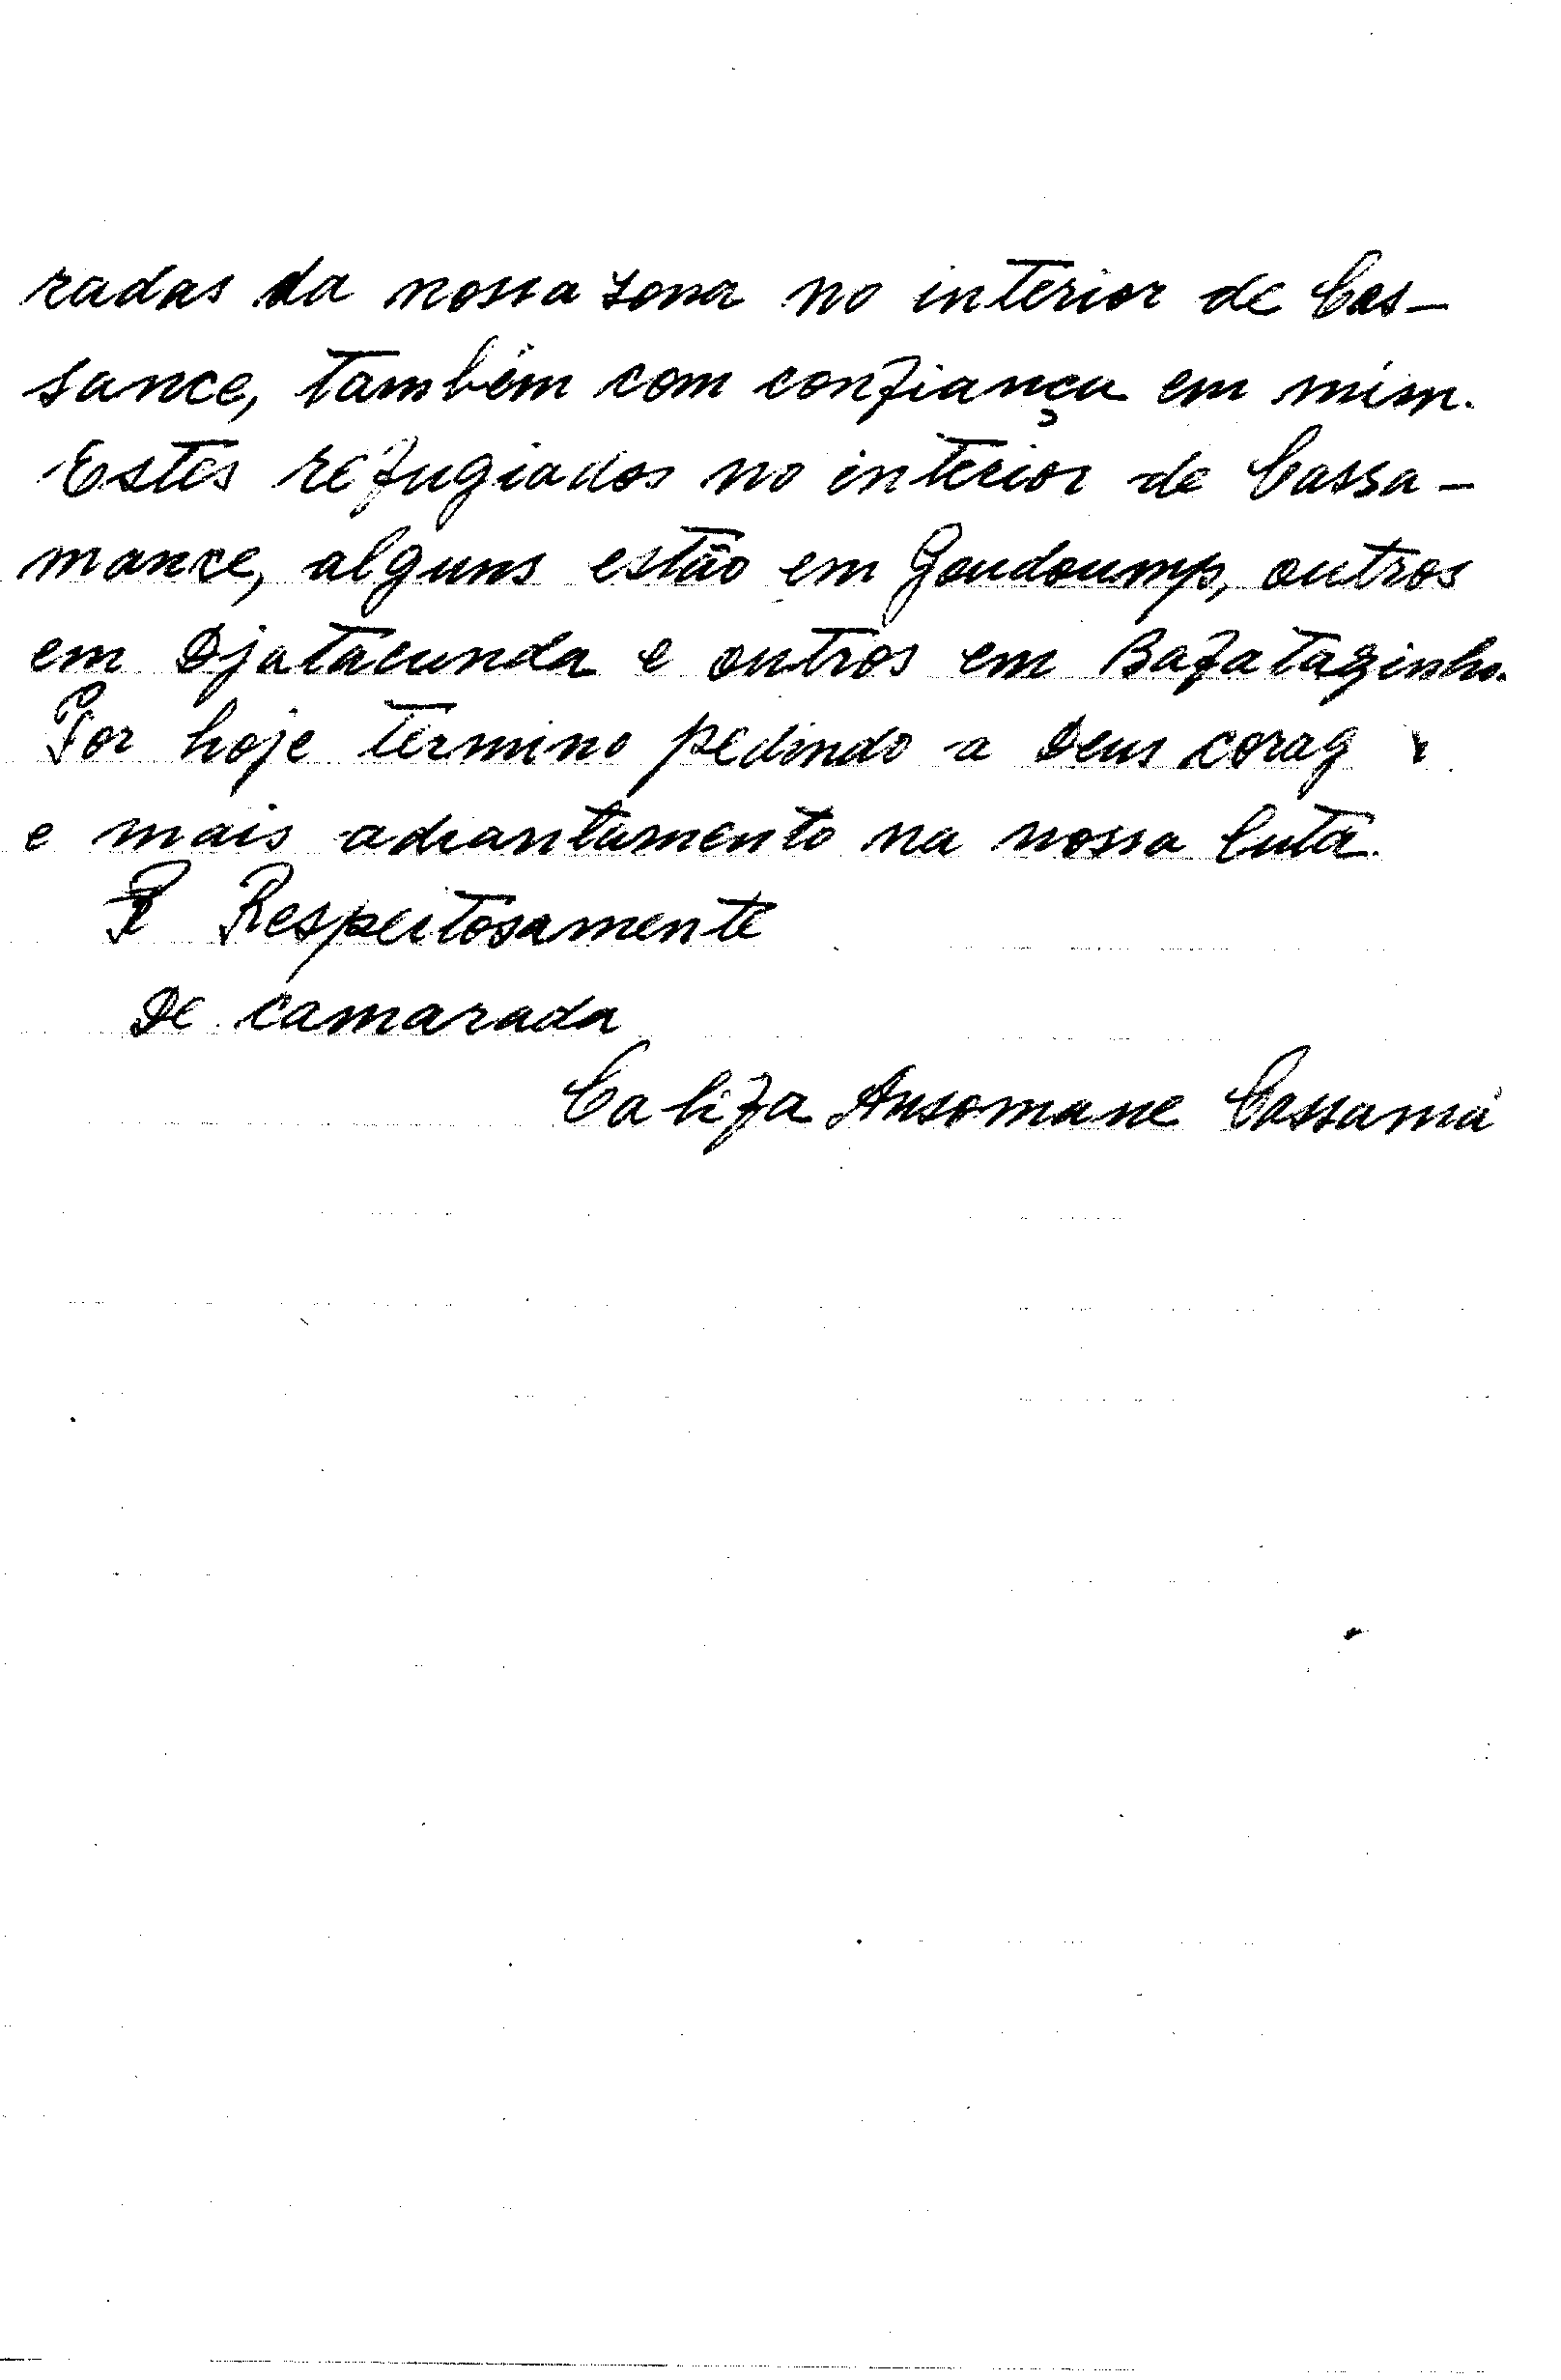 radas da nossa zona no interior de Cas-
sance, também com confiança em mim.
Estes refugiados no interior de Cassa-
mance, alguns estão em Goudoump, outros
em Djatacunda e outros em Bafataginho.
Por hoje termino pedindo a Deus corag
e mais adiantamento na nossa luta.
Respeitosamente
De camarada
Califa Ansomane Cassamá